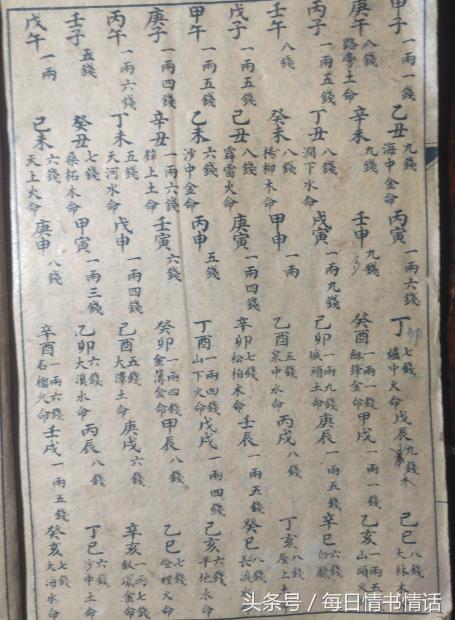 甲子一兩一錢 乙丑九錢海中金命 丙寅一兩六錢 丁卯七錢爐中火命 戊辰九錢木 己巳八錢大林木
庚午八錢路旁土命 辛未九錢 壬申九錢 癸酉一兩一錢鋒金命 甲戌一兩一錢 乙亥一兩五山頭火
丙子一兩五錢 丁丑八錢澗下水命 戊寅一兩九錢 己卯一兩九錢城頭土命 庚辰一兩五錢 辛巳六錢白
壬午八錢 癸未八錢楊柳木命 甲申一兩 乙酉五錢泉中水命 丙戌八錢 丁亥八錢屋上土
戊子一兩五錢 己丑八錢霹雷火命 庚寅一兩四錢 辛卯七錢松柏木命 壬辰一兩五錢 癸巳八錢長流
甲午一兩五錢 乙未六錢沙中金命 丙申五錢 丁酉一兩四錢山下火命 戊戌一兩四錢 己亥六錢平地水命
庚子一兩四錢 辛丑一兩六錢壁上土命 壬寅六錢 癸卯一兩四錢金簿金命 甲辰八錢 乙巳七錢燈裡火命
丙午一兩六錢 丁未五錢天河水命 戊申一兩四錢 己酉五錢大澤土命 庚戌六錢 辛亥一兩七錢釵環金命
壬子五錢 癸丑七錢桑柘木命 甲寅一兩三錢 乙卯六錢大溪水命 丙辰八錢 丁巳六錢沙中土命
戊午一兩 己未六錢天上火命 庚申八錢 辛酉一兩六錢石榴火命 壬戌一兩五錢 癸亥七錢大海水命
头条号 / 每日情书情话